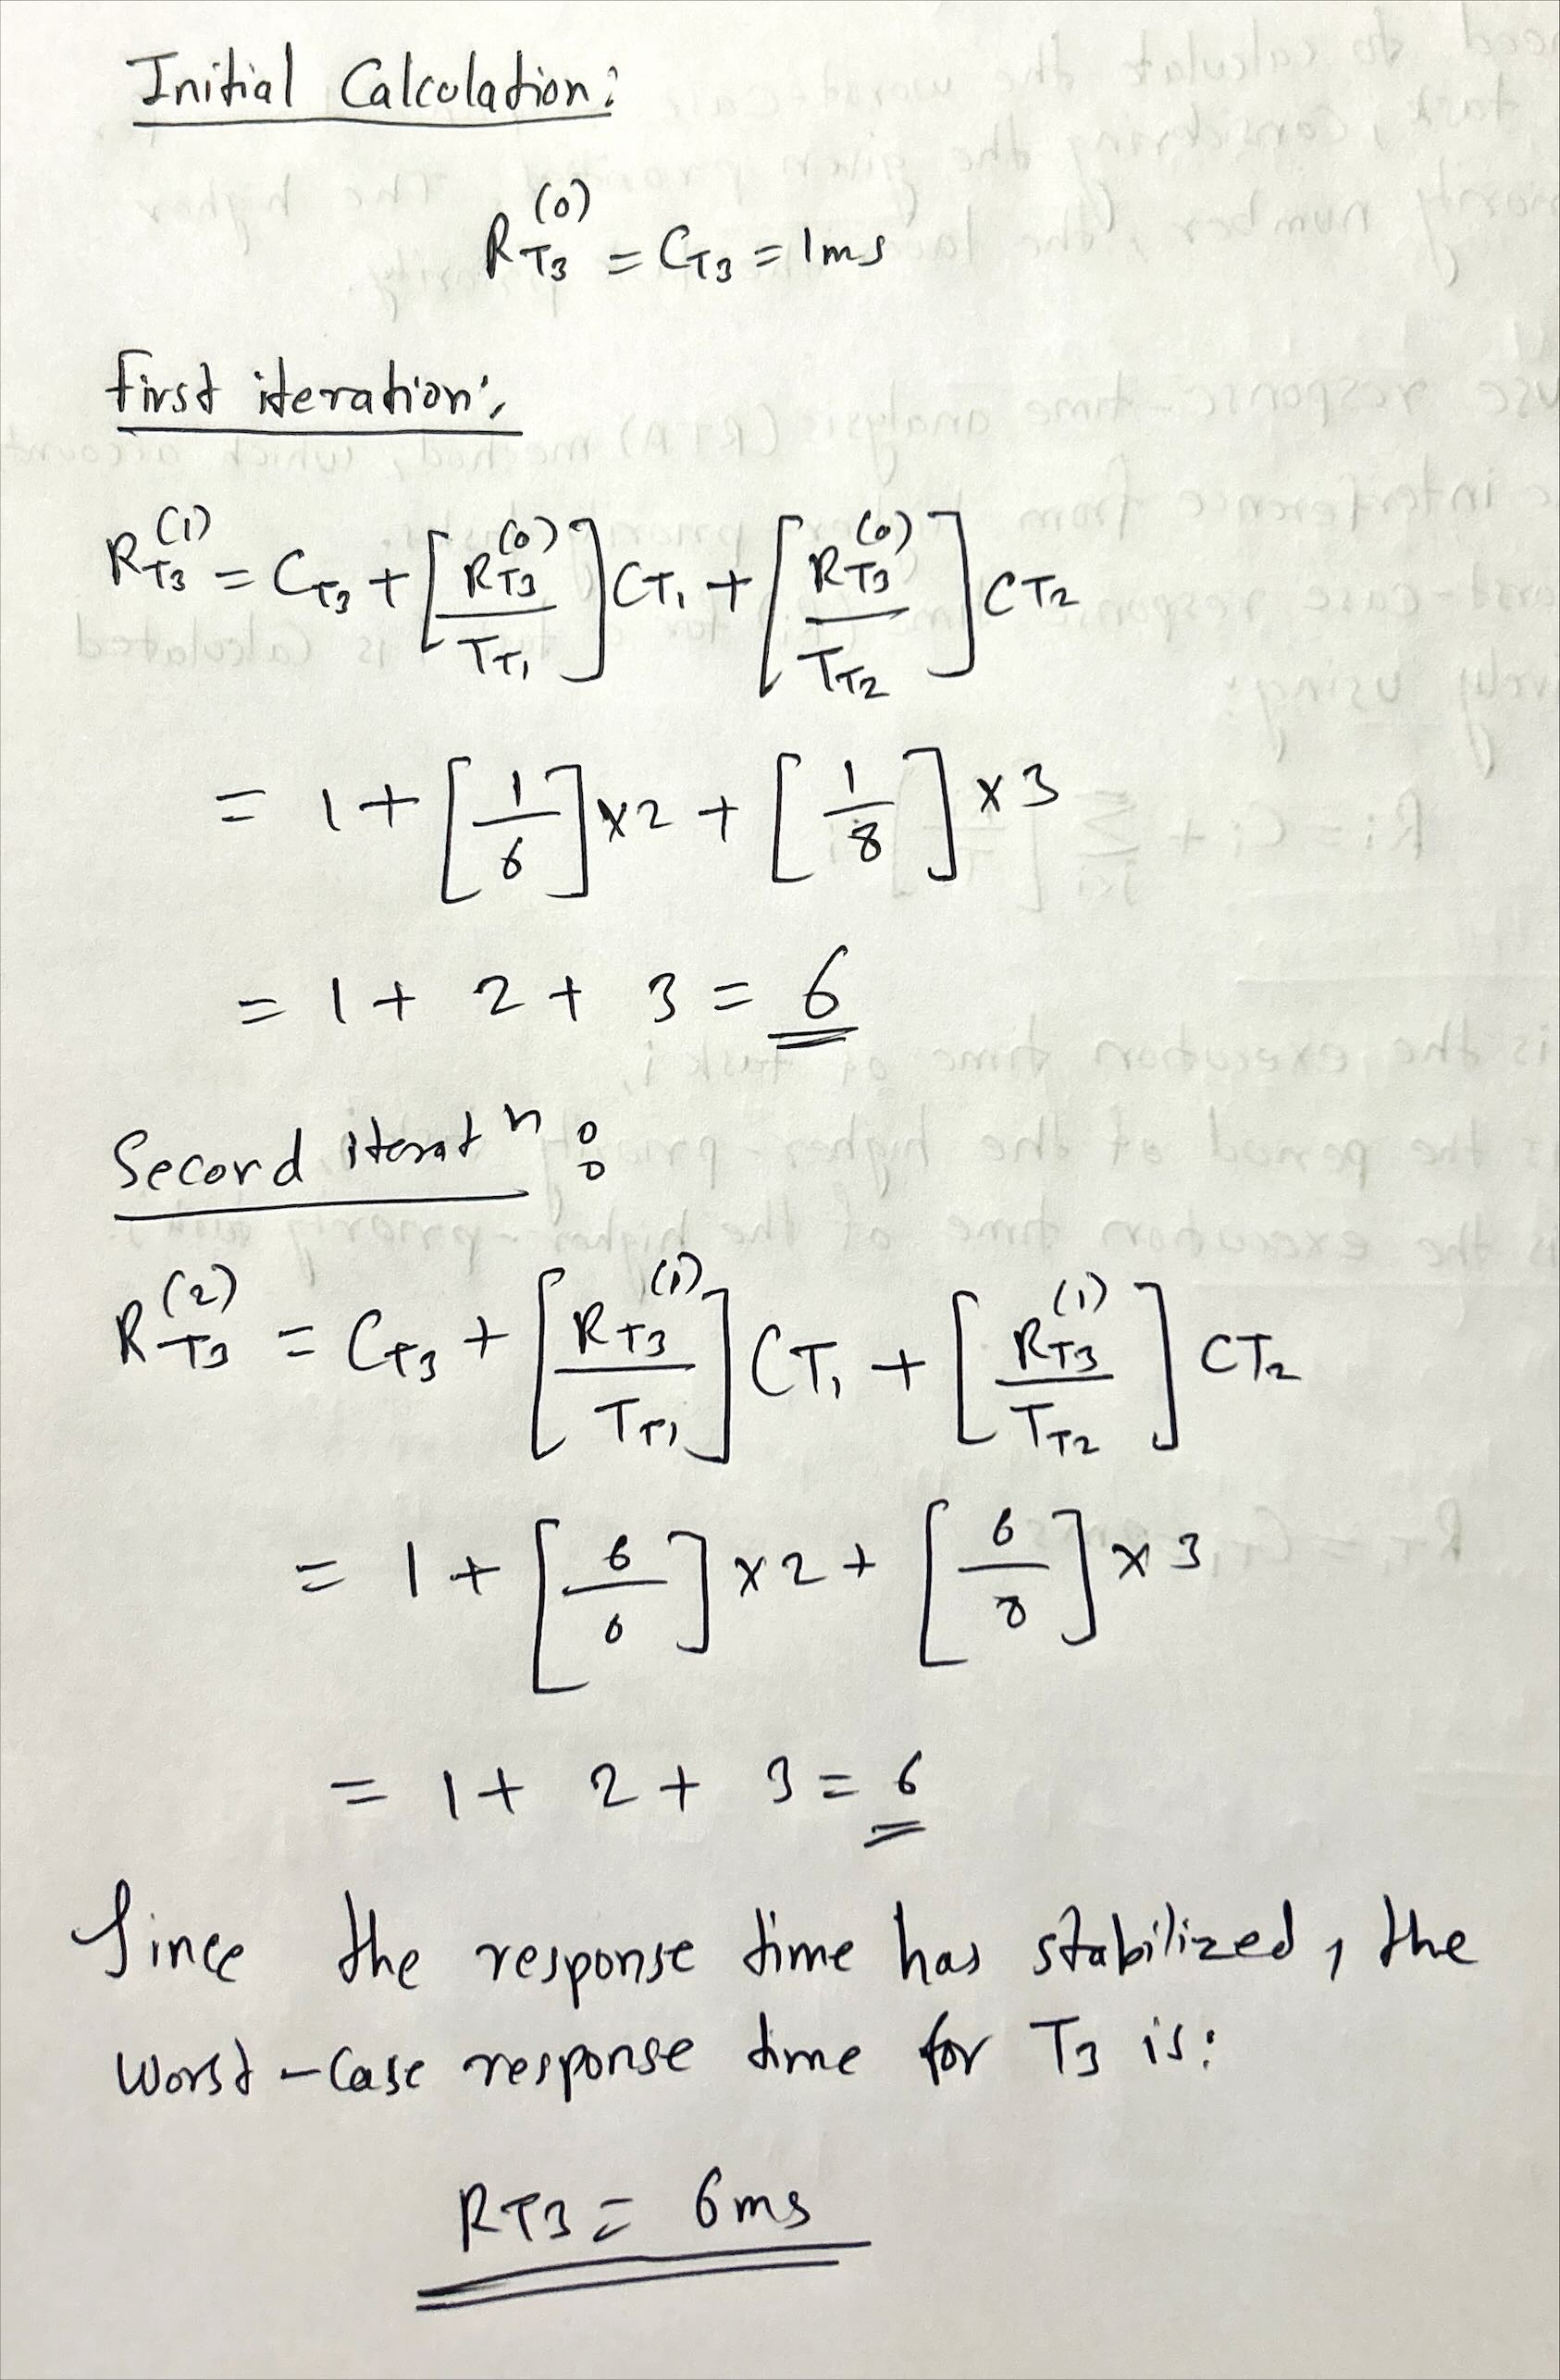 Initial Calculation:
R_T3^(0) = C_T3 = 1ms
first iteration:
R_T3^(1) = C_T3 + [R_T3^(0) / T_T1] CT1 + [R_T3^(0) / T_T2] CT2
= 1 + [1/6] x2 + [1/8] x3
= 1 + 2 + 3 = 6
Second iterat n :
R_T3^(2) = C_T3 + [R_T3^(1) / T_T1] CT1 + [R_T3^(1) / T_T2] CT2
= 1 + [6/6] x2 + [6/8] x3
= 1 + 2 + 3 = 6
Since the response time has stabilized, the
worst-case response time for T3 is:
RT3 = 6ms